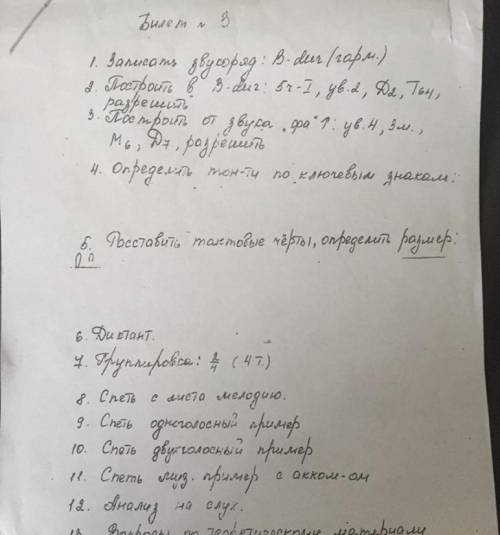 Билет № 3
1. Записать звукоряд: B-dur (гарм.)
2. Построить в B-dur: 5ч-I, ув.2, D2, T64,
разрешить
3. Построить от звука „фа“ ↑: ув.4, 3м.,
М6, D7, разрешить
4. Определить тон-ти по ключевым знакам:
5. Расставить тактовые чёрты, определить размер:
6. Диктант.
7. Группировка: 2/4 (4т.)
8. Спеть с листа мелодию.
9. Спеть одноголосный пример
10. Спеть двухголосный пример
11. Спеть муз. пример с акком-ом
12. Анализ на слух.
13. Вопросы по теоретическому материалу